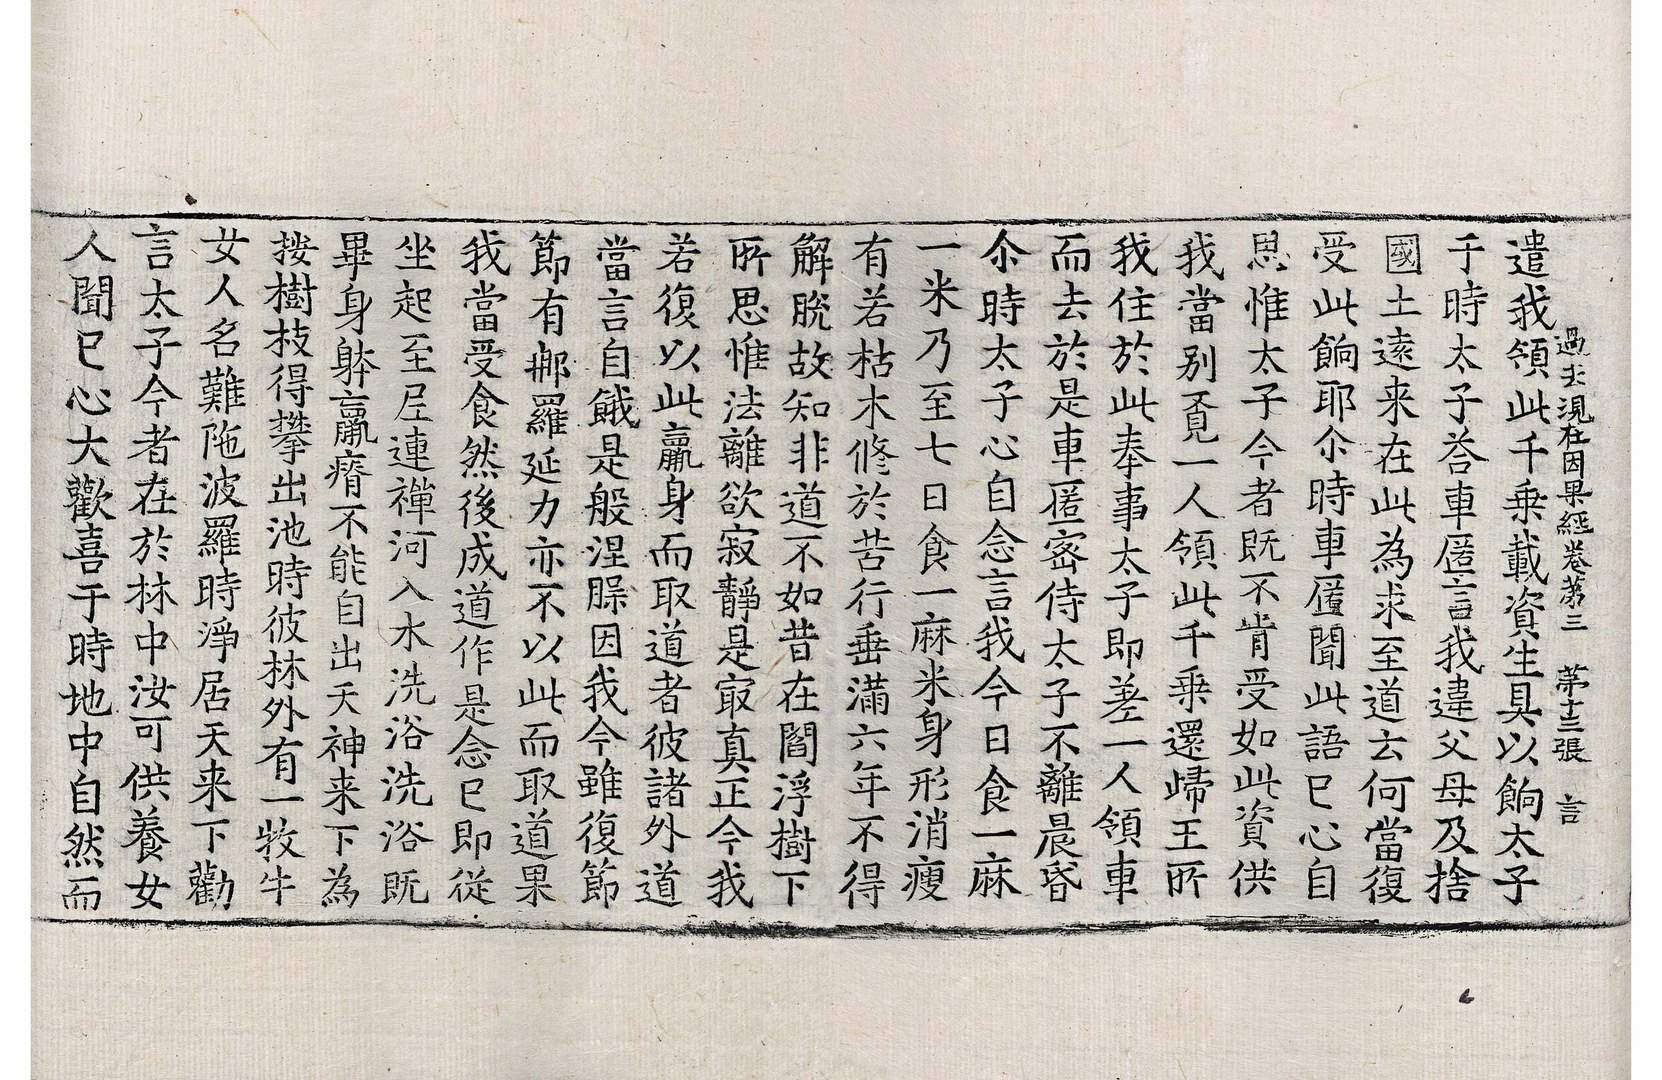 過去現在因果經卷苐三　苐十三張　言
遣我領此千乗載資生具以餉太子
于時太子荅車匿言我違父母及捨
國土逺来在此為求至道云何當復
受此餉耶尒時車匿聞此語已心自
思惟太子今者既不肯受如此資供
我當别覔一人領此千乗還歸王所
我住於此奉事太子即差一人領車
而去於是車匿宻侍太子不離晨昏
尒時太子心自念言我今日食一麻
一米乃至七日食一麻米身形消瘦
有若枯木修於苦行垂滿六年不得
解脫故知非道不如昔在閻浮樹下
所思惟法離欲寂靜是㝡真正今我
若復以此羸身而取道者彼諸外道
當言自餓是般涅𣎑因我今雖復節
節有郍羅延力亦不以此而取道果
我當受食然後成道作是念已即從
坐起至尼連禪河入水洗浴洗浴既
畢身躰羸瘠不能自出天神来下為
按樹枝得攀出池時彼林外有一牧牛
女人名難陁波羅時淨居天来下勸
言太子今者在於林中汝可供養女
人聞已心大歡喜于時地中自然而